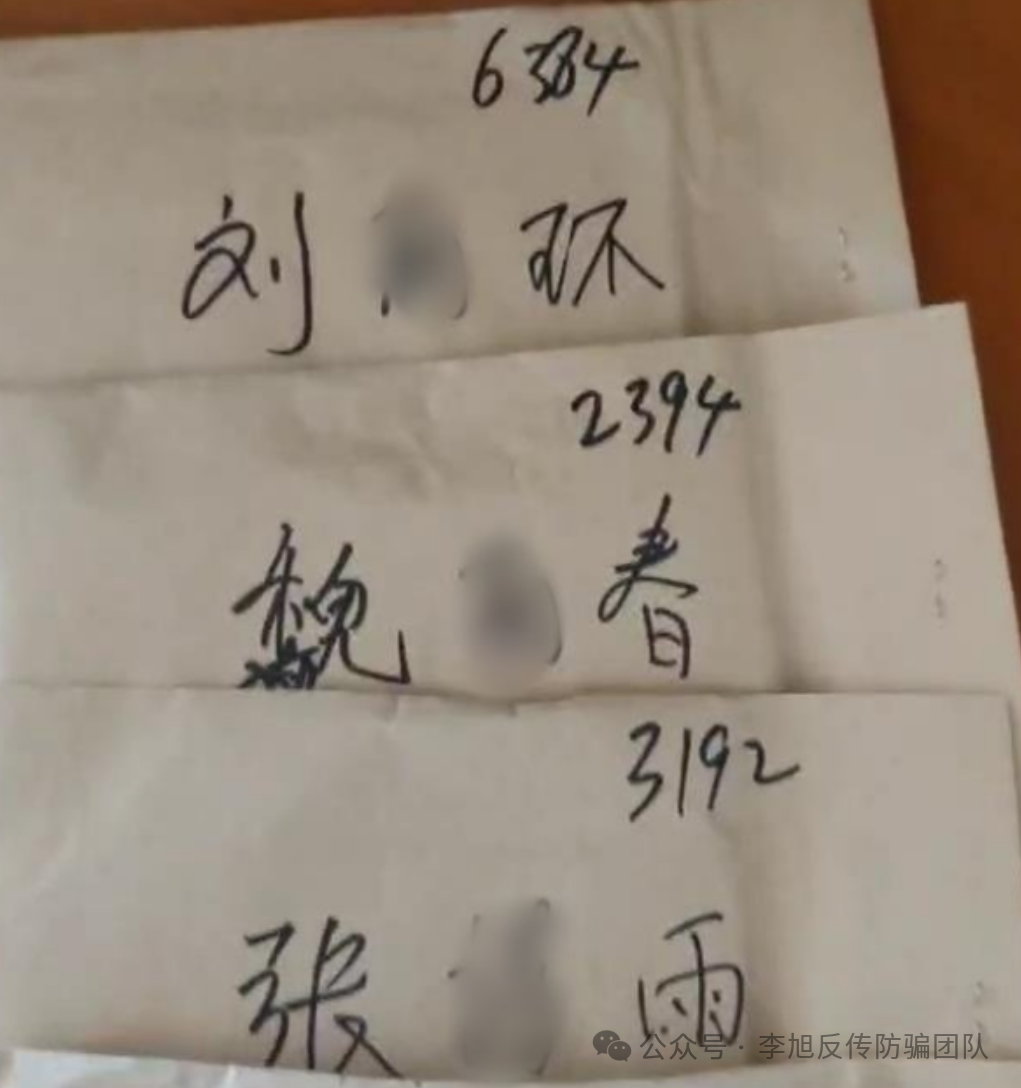 6384
刘 环
2394
魏 春
3192
张 雨
公众号 · 李旭反传防骗团队